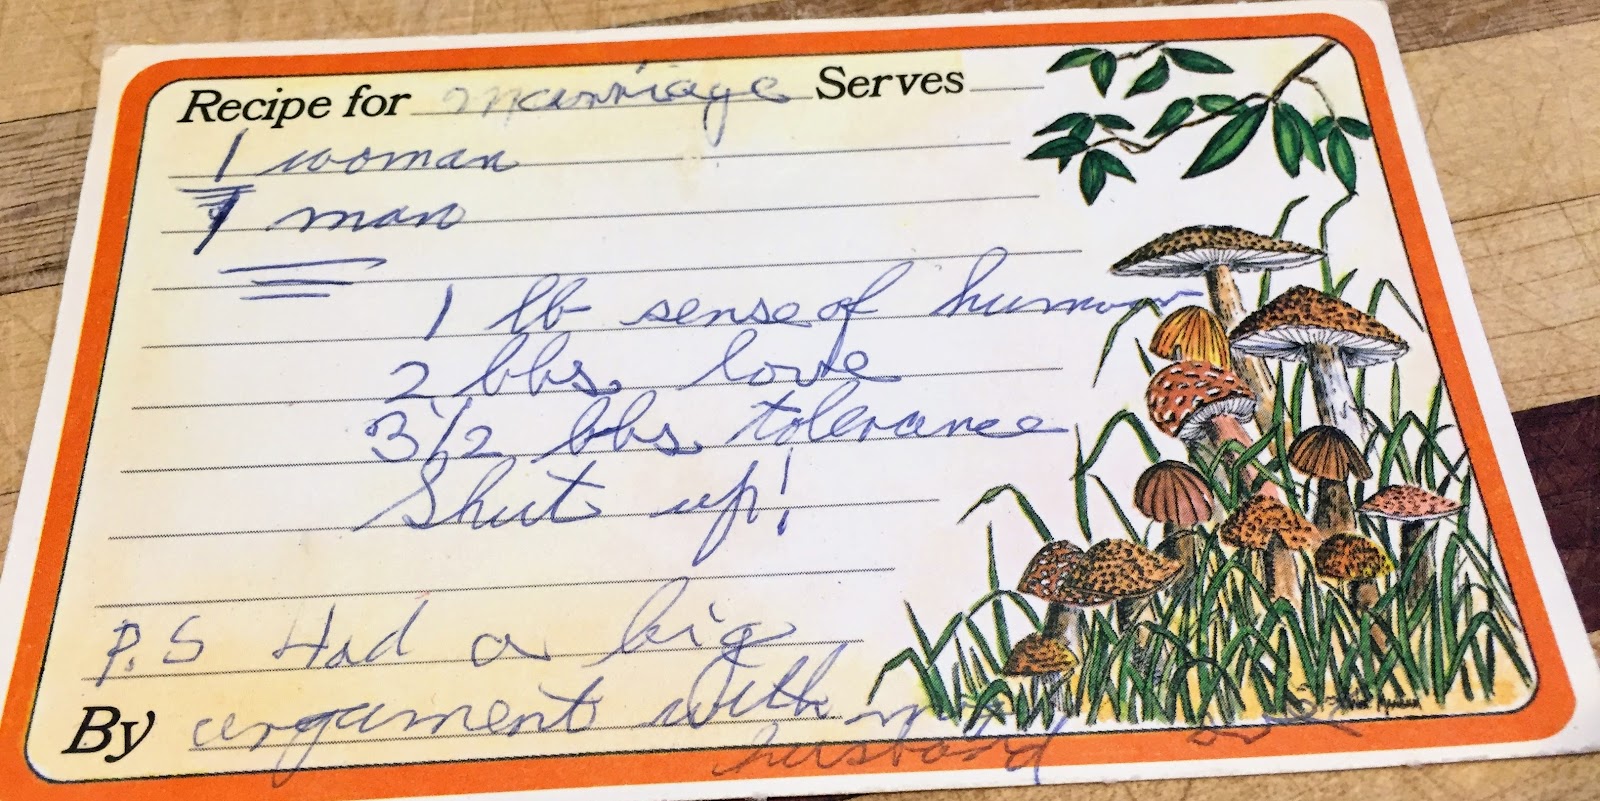 Recipe for marriage Serves
1 woman
1 man
1 lb sense of humor
2 lbs. love
3 1/2 lbs. tolerance
Shut up!
P.S Had a big
By argument with my
husband